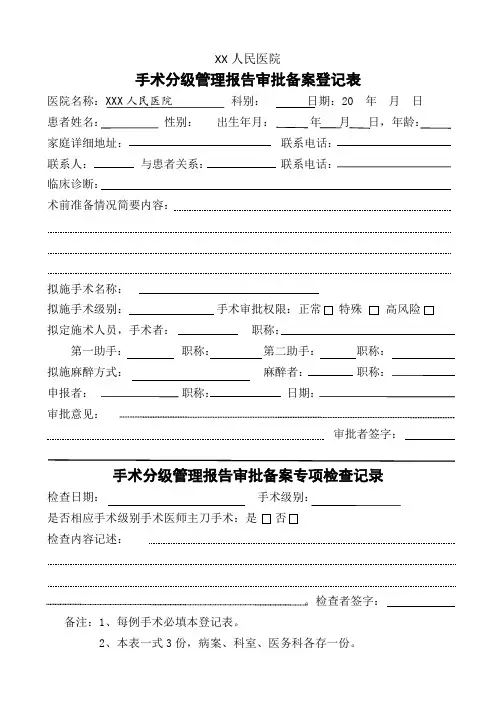 XX人民医院
手术分级管理报告审批备案登记表
医院名称：XXX人民医院 科别： 日期：20 年 月 日
患者姓名： 性别： 出生年月： 年 月 日，年龄：
家庭详细地址： 联系电话：
联系人： 与患者关系： 联系电话：
临床诊断：
术前准备情况简要内容：
拟施手术名称：
拟施手术级别： 手术审批权限：正常□ 特殊 □ 高风险□
拟定施术人员，手术者： 职称：
第一助手： 职称： 第二助手： 职称：
拟施麻醉方式： 麻醉者： 职称：
申报者： 职称： 日期：
审批意见：
审批者签字：
手术分级管理报告审批备案专项检查记录
检查日期： 手术级别：
是否相应手术级别手术医师主刀手术：是 □ 否□
检查内容记述：
。检查者签字：
备注：1、每例手术必填本登记表。
2、本表一式3份，病案、科室、医务科各存一份。